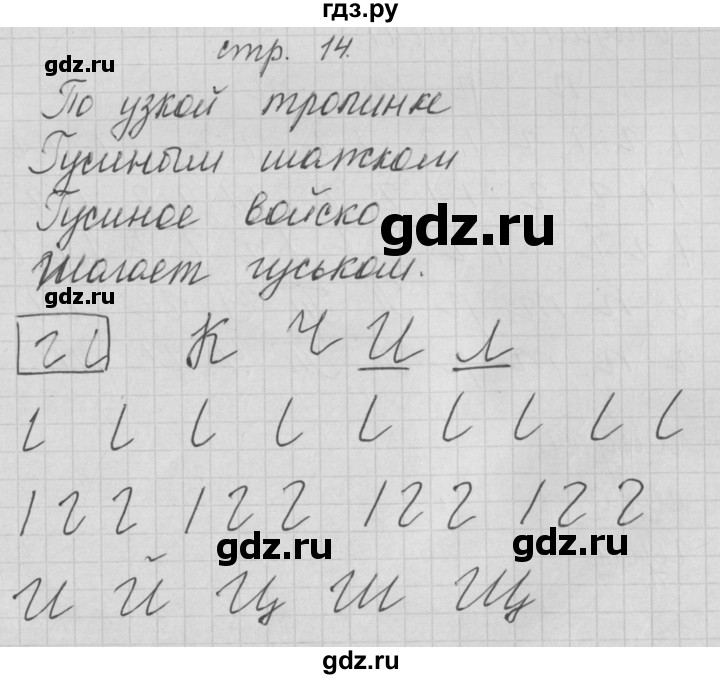 гдз.ру
стр. 14.
gdz.ru
По узкой тропинке
Гусиным шажком
Гусиное войско
gdz.ru
Шагает гуськом.
gdz.ru
г и К Ч И Л
gdz.ru
gdz.ru
И Й Ц Ш Щ
gdz.ru